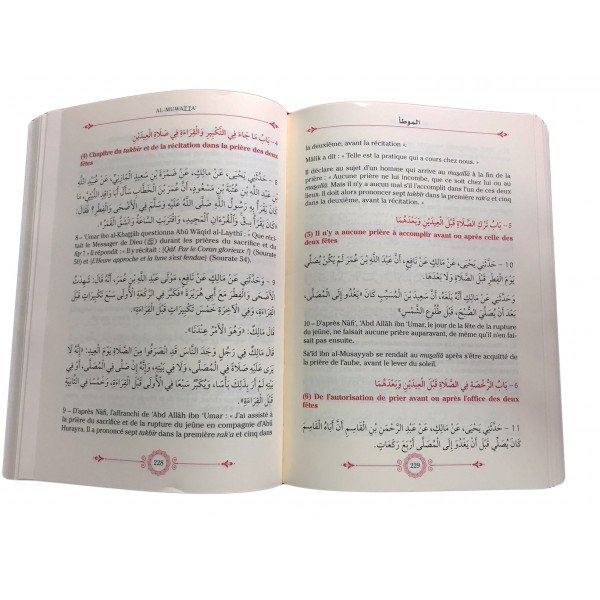 AL-MUWAṬṬA'
4 - بَابُ مَا جَاءَ فِي التَّكْبِيرِ وَالْقِرَاءَةِ فِي صَلَاةِ الْعِيدَيْنِ
(4) Chapitre du takbîr et de la récitation dans la prière des deux
fêtes
8 - حَدَّثَنِي يَحْيَى، عَنْ مَالِكٍ، عَنْ ضَمْرَةَ بْنِ سَعِيدٍ الْمَازِنِيِّ، عَنْ عُبَيْدِ اللَّهِ
بْنِ عَبْدِ اللَّهِ بْنِ عُتْبَةَ بْنِ مَسْعُودٍ، أَنَّ عُمَرَ بْنَ الْخَطَّابِ سَأَلَ أَبَا وَاقِدٍ اللَّيْثِيَّ مَا
كَانَ يَقْرَأُ بِهِ رَسُولُ اللَّهِ ﷺ فِي الْأَضْحَى وَالْفِطْرِ؟ فَقَالَ:
كَانَ يَقْرَأُ بِـ: ق، وَالْقُرْءَانِ الْمَجِيدِ، وَاقْتَرَبَتِ السَّاعَةُ وَانْشَقَّ الْقَمَرُ.
8 – 'Umar ibn al-Khaṭṭâb questionna Abû Wâqid al-Laythî : « Que récitait
le Messager de Dieu (ﷺ) durant les prières du sacrifice et du
fiṭr ? » Il répondit : « Il y récitait : (Qâf. Par le Coran glorieux !) (Sourate
50) et (L'Heure approche et la lune s'est fendue) (Sourate 54).
9 - وَحَدَّثَنِي عَنْ مَالِكٍ، عَنْ نَافِعٍ، مَوْلَى عَبْدِ اللَّهِ بْنِ عُمَرَ، أَنَّهُ قَالَ: شَهِدْتُ
الْأَضْحَى وَالْفِطْرَ مَعَ أَبِي هُرَيْرَةَ «فَكَبَّرَ فِي الرَّكْعَةِ الْأُولَى سَبْعَ تَكْبِيرَاتٍ قَبْلَ
الْقِرَاءَةِ، وَفِي الْآخِرَةِ خَمْسَ تَكْبِيرَاتٍ قَبْلَ الْقِرَاءَةِ».
قَالَ مَالِكٌ: «وَهُوَ الْأَمْرُ عِنْدَنَا».
قَالَ مَالِكٌ فِي رَجُلٍ وَجَدَ النَّاسَ قَدِ انْصَرَفُوا مِنَ الصَّلَاةِ يَوْمَ الْعِيدِ: إِنَّهُ لَا
يَرَى عَلَيْهِ صَلَاةً فِي الْمُصَلَّى، وَلَا فِي بَيْتِهِ، وَإِنَّهُ إِنْ صَلَّى فِي الْمُصَلَّى، أَوْ فِي
بَيْتِهِ، لَمْ أَرَ بِذَلِكَ بَأْسًا، وَيُكَبِّرُ سَبْعًا فِي الْأُولَى قَبْلَ الْقِرَاءَةِ، وَخَمْسًا فِي الثَّانِيَةِ
قَبْلَ الْقِرَاءَةِ.
9 – D'après Nâfi', l'affranchi de 'Abd Allâh ibn 'Umar : « J'ai assisté à
la prière du sacrifice et du rupture du jeûne en compagnie d'Abû
Hurayra. Il a prononcé sept takbîr dans la première rak'a et cinq dans
228
الموطأ
la deuxième, avant la récitation ».
Mâlik a dit : « Telle est la pratique qui a cours chez nous. »
Il déclare au sujet d'un homme qui arrive au muṣallâ à la fin de
l'office : « Aucune prière ne lui incombe, que ce soit chez lui ou au
muṣallâ. Mais il n'y a aucun mal s'il l'accomplit dans l'un de ces deux
lieux. Il doit alors prononcer sept takbîr dans la première rak'a et cinq
dans la deuxième, avant la récitation. »
5 - بَابُ تَرْكِ الصَّلَاةِ قَبْلَ الْعِيدَيْنِ وَبَعْدَهُمَا
(5) Il n'y a aucune prière à accomplir avant ou après celle des
deux fêtes
10 - حَدَّثَنِي يَحْيَى، عَنْ مَالِكٍ، عَنْ نَافِعٍ، أَنَّ عَبْدَ اللَّهِ بْنَ عُمَرَ لَمْ يَكُنْ يُصَلِّي
يَوْمَ الْفِطْرِ قَبْلَ الصَّلَاةِ وَلَا بَعْدَهَا.
وَحَدَّثَنِي عَنْ مَالِكٍ، أَنَّهُ بَلَغَهُ، أَنَّ سَعِيدَ بْنَ الْمُسَيِّبِ كَانَ «يَغْدُو إِلَى الْمُصَلَّى،
بَعْدَ أَنْ يُصَلِّيَ الصُّبْحَ، قَبْلَ طُلُوعِ الشَّمْسِ».
10 – D'après Nâfi', 'Abd Allâh ibn 'Umar, le jour de la fête de la rupture
du jeûne, ne faisait aucune prière auparavant, de même qu'il n'en
faisait pas ensuite.
Sa'îd ibn al-Musayyab se rendait au muṣallâ après s'être acquitté de
la prière de l'aube, avant le lever du soleil.
6 - بَابُ الرُّخْصَةِ فِي الصَّلَاةِ قَبْلَ الْعِيدَيْنِ وَبَعْدَهُمَا
(6) De l'autorisation de prier avant ou après l'office des deux
fêtes
11 - حَدَّثَنِي يَحْيَى، عَنْ مَالِكٍ، عَنْ عَبْدِ الرَّحْمَنِ بْنِ الْقَاسِمِ أَنَّ أَبَاهُ الْقَاسِمَ
كَانَ يُصَلِّي قَبْلَ أَنْ يَغْدُوَ إِلَى الْمُصَلَّى أَرْبَعَ رَكَعَاتٍ.
229